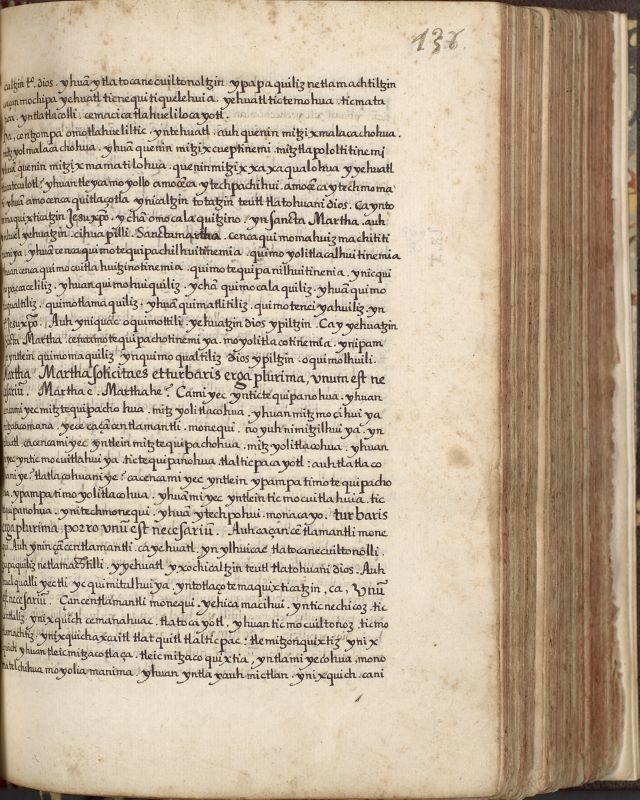 136.
caltzin tº. dios. yhuã ytlatocanecuiltonoltzin ypapaquiliz netlamachtiltzin
çan mochipa yehuatl ticnequi tiquelehuia. yehuatl tictemohua. ticmata
yntlatlacolli. cemaci ca tlahueliloca yotl.
centzompa omotlahueliltic. yntehuatl. auh quenin mitzixmalacachohua.
mitzyolmalacachohua. yhuã quenin mitzixcueptinemi. mitztlapololtitinemi
yhuã quenin mitzixmamatilohua. quenin mitzixxaxaqualohua yyehuatl
tlacatecolotl? yhuan tleyca moyollo amo cẽca ytech pachihui. amo cẽca ytech moma
yhuã amo cenca quitlaçotla ynicaltzin totatzin teutl tlatohuani dios. Ca ynto
maquixticatzin Jesuxpõ. ychã omocalaquitzino. yn sancta Martha. auh
yehuatzin. cihuapilli. Sancta martha. cenca quimomahuizmachititi
ya. yhuã cenca quimotequipachilhuitinemia. quimoyolitlacalhuitinemia
yhuan cenca quimocuitlahuitzinotinemia. quimotequipanilhuitinemia. ynicqui
paccaceliliz. yhuan quimohuiquiliz. ychã quimocalaquiliz. yhuã quimo
tlaqualtiliz. quimotlamaquiliz. yhuã quimatlitiliz. quimotenciyahuiliz. yn
tº. Jesuxpõ. Auh yniquac oquimottili. yehuatzin dios ypiltzin. Ca yehuatzin
Sctã Martha. cenca motequipachotinemi ya. moyolitlacotinemia. ynipam
yntlein quimomaquiliz ynquimoqualtiliz dios ypiltzin. oquimolhuili.
Martha Martha solicita es et turbaris erga plurima, vnum est ne
cesariũ. Martha é. Marthahe? Cami yec yntictequipanohua. yhuan
cami yec mitztequipachohua. mitzyolitlacohua. yhuan mitzmocihuiya
mitzacomana. yece caçã centlamantli. monequi. no yuh nimitzilhuiya. yn
tehuatl. cacenca mi yec yntlein mitztequipachohua. mitzyolitlacohua. yhuan
yec yntic mocuitlahuiya. tictequipanohua. tlalticpacayotl: auh tlatlaco
ani ye? tlatlacohuani ye? cacenca mi yec yntlein ypampa timotequipacho
hua, ypampa timoyolitlacohua. yhuã mi yec yntlein ticmocuitlahuia. tic
tequipanohua. ynitechmonequi. yhuã ytechpohui. monacayo. turbaris
erga plurima, porro vnũ est necesariũ. Auh caçan cẽ tlamantli mone
qui. Auh ynin çã centlamantli. ca yehuatl. yn ylhuicac tlatocanecuiltonolli.
papaquiliz netlamachtilli. yyehuatl yxochicaltzin teutl tlatohuani dios. Auh
huel qualli yectli yc quimitalhuiya. yntotlaçotemaquixticatzin, ca, Vnũ
est necesariũ. Çan centlamantli monequi. yehica macihui. yntic nechicoz. tic
tlaliz. ynixquich cemanahuac. tlatocayotl. yhuan tic mocuiltonoz ticmo
cuimachtiz. ynixquich axcaitl tlatquitl tlalticpac: tle mitzonquixtiz ynix
quich yhuan tleic mitzacotlaça. tleic mitzacoquixtia, yntlami yecohua. mono
matelchihua moyolia manima. yhuan yntla yauh mictlan. ynixquich. cani